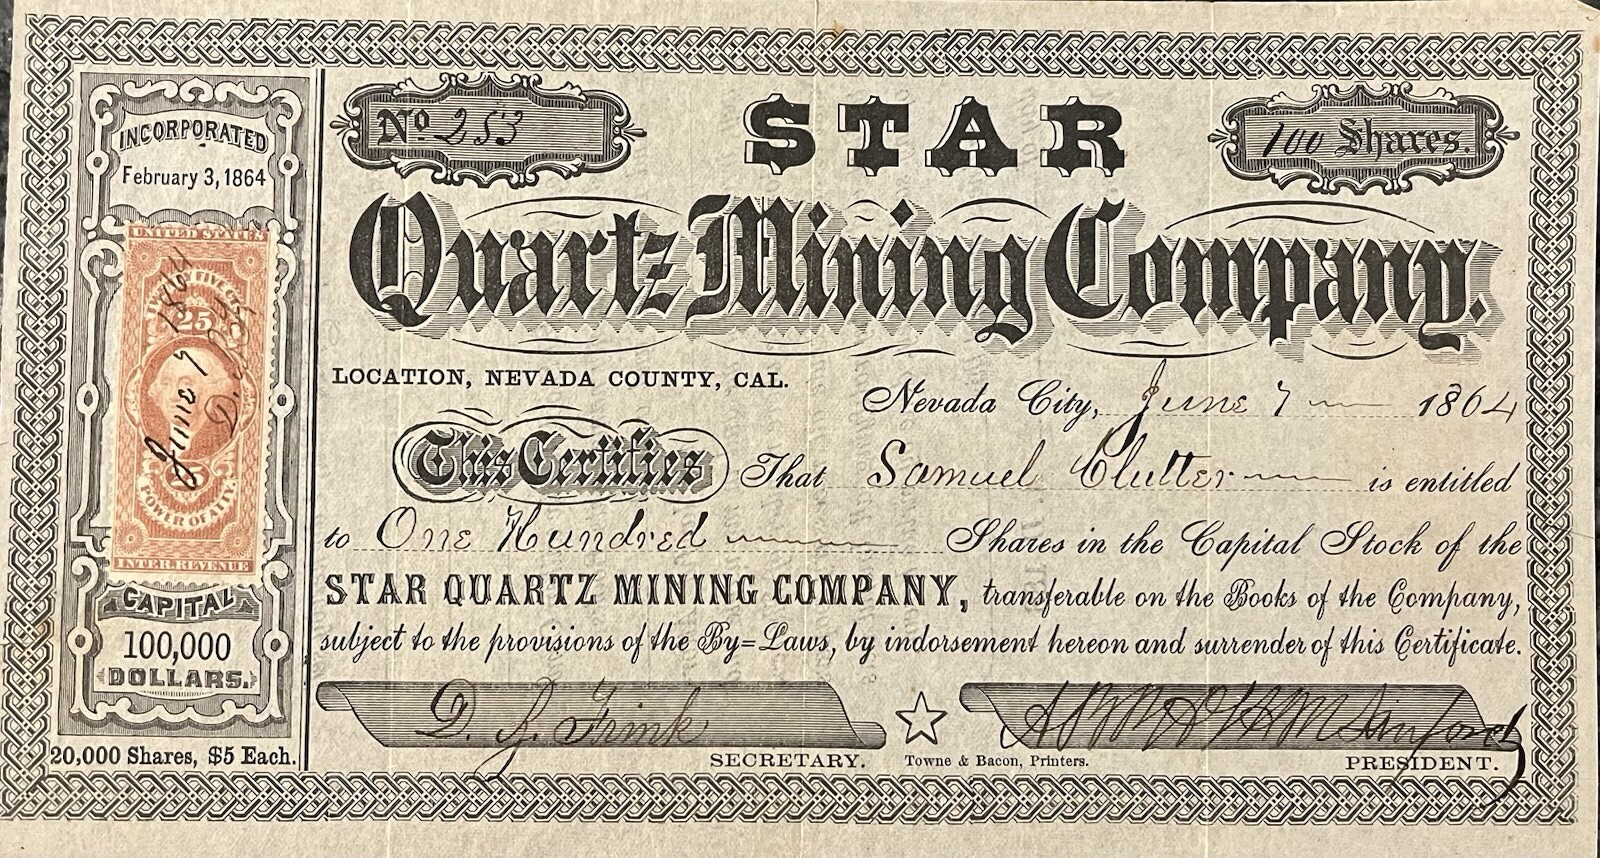 INCORPORATED
February 3, 1864
UNITED STATES
TWENTY FIVE CTS
25
25
June 7 1864
D. J. F.
POWER OF ATTY.
INTER. REVENUE
CAPITAL
100,000
DOLLARS.
20,000 Shares, $5 Each.
No 253
STAR
100 Shares.
Quartz Mining Company.
LOCATION, NEVADA COUNTY, CAL.
Nevada City, June 7 1864
This Certifies That Samuel Clutter is entitled
to One Hundred Shares in the Capital Stock of the
STAR QUARTZ MINING COMPANY, transferable on the Books of the Company,
subject to the provisions of the By=Laws, by indorsement hereon and surrender of this Certificate.
D. J. Frink
SECRETARY.
Towne & Bacon, Printers.
PRESIDENT.